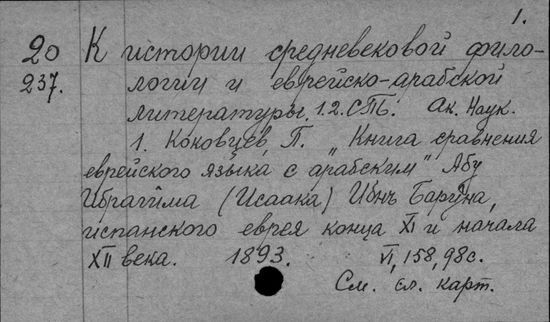 1.
20 К истории средневековой фило-
237. логии и еврейско-арабской
литературы. 1.2. СПб. Ак. Наук.
1. Коковцев, П. „Книга сравнения
еврейского языка с арабским" Абу
Ибрагима (Исаака) Ибнъ Баруна,
испанского еврея конца XI и начала
XII века. 1893. VI, 158, 98 с.
См. сл. карт.